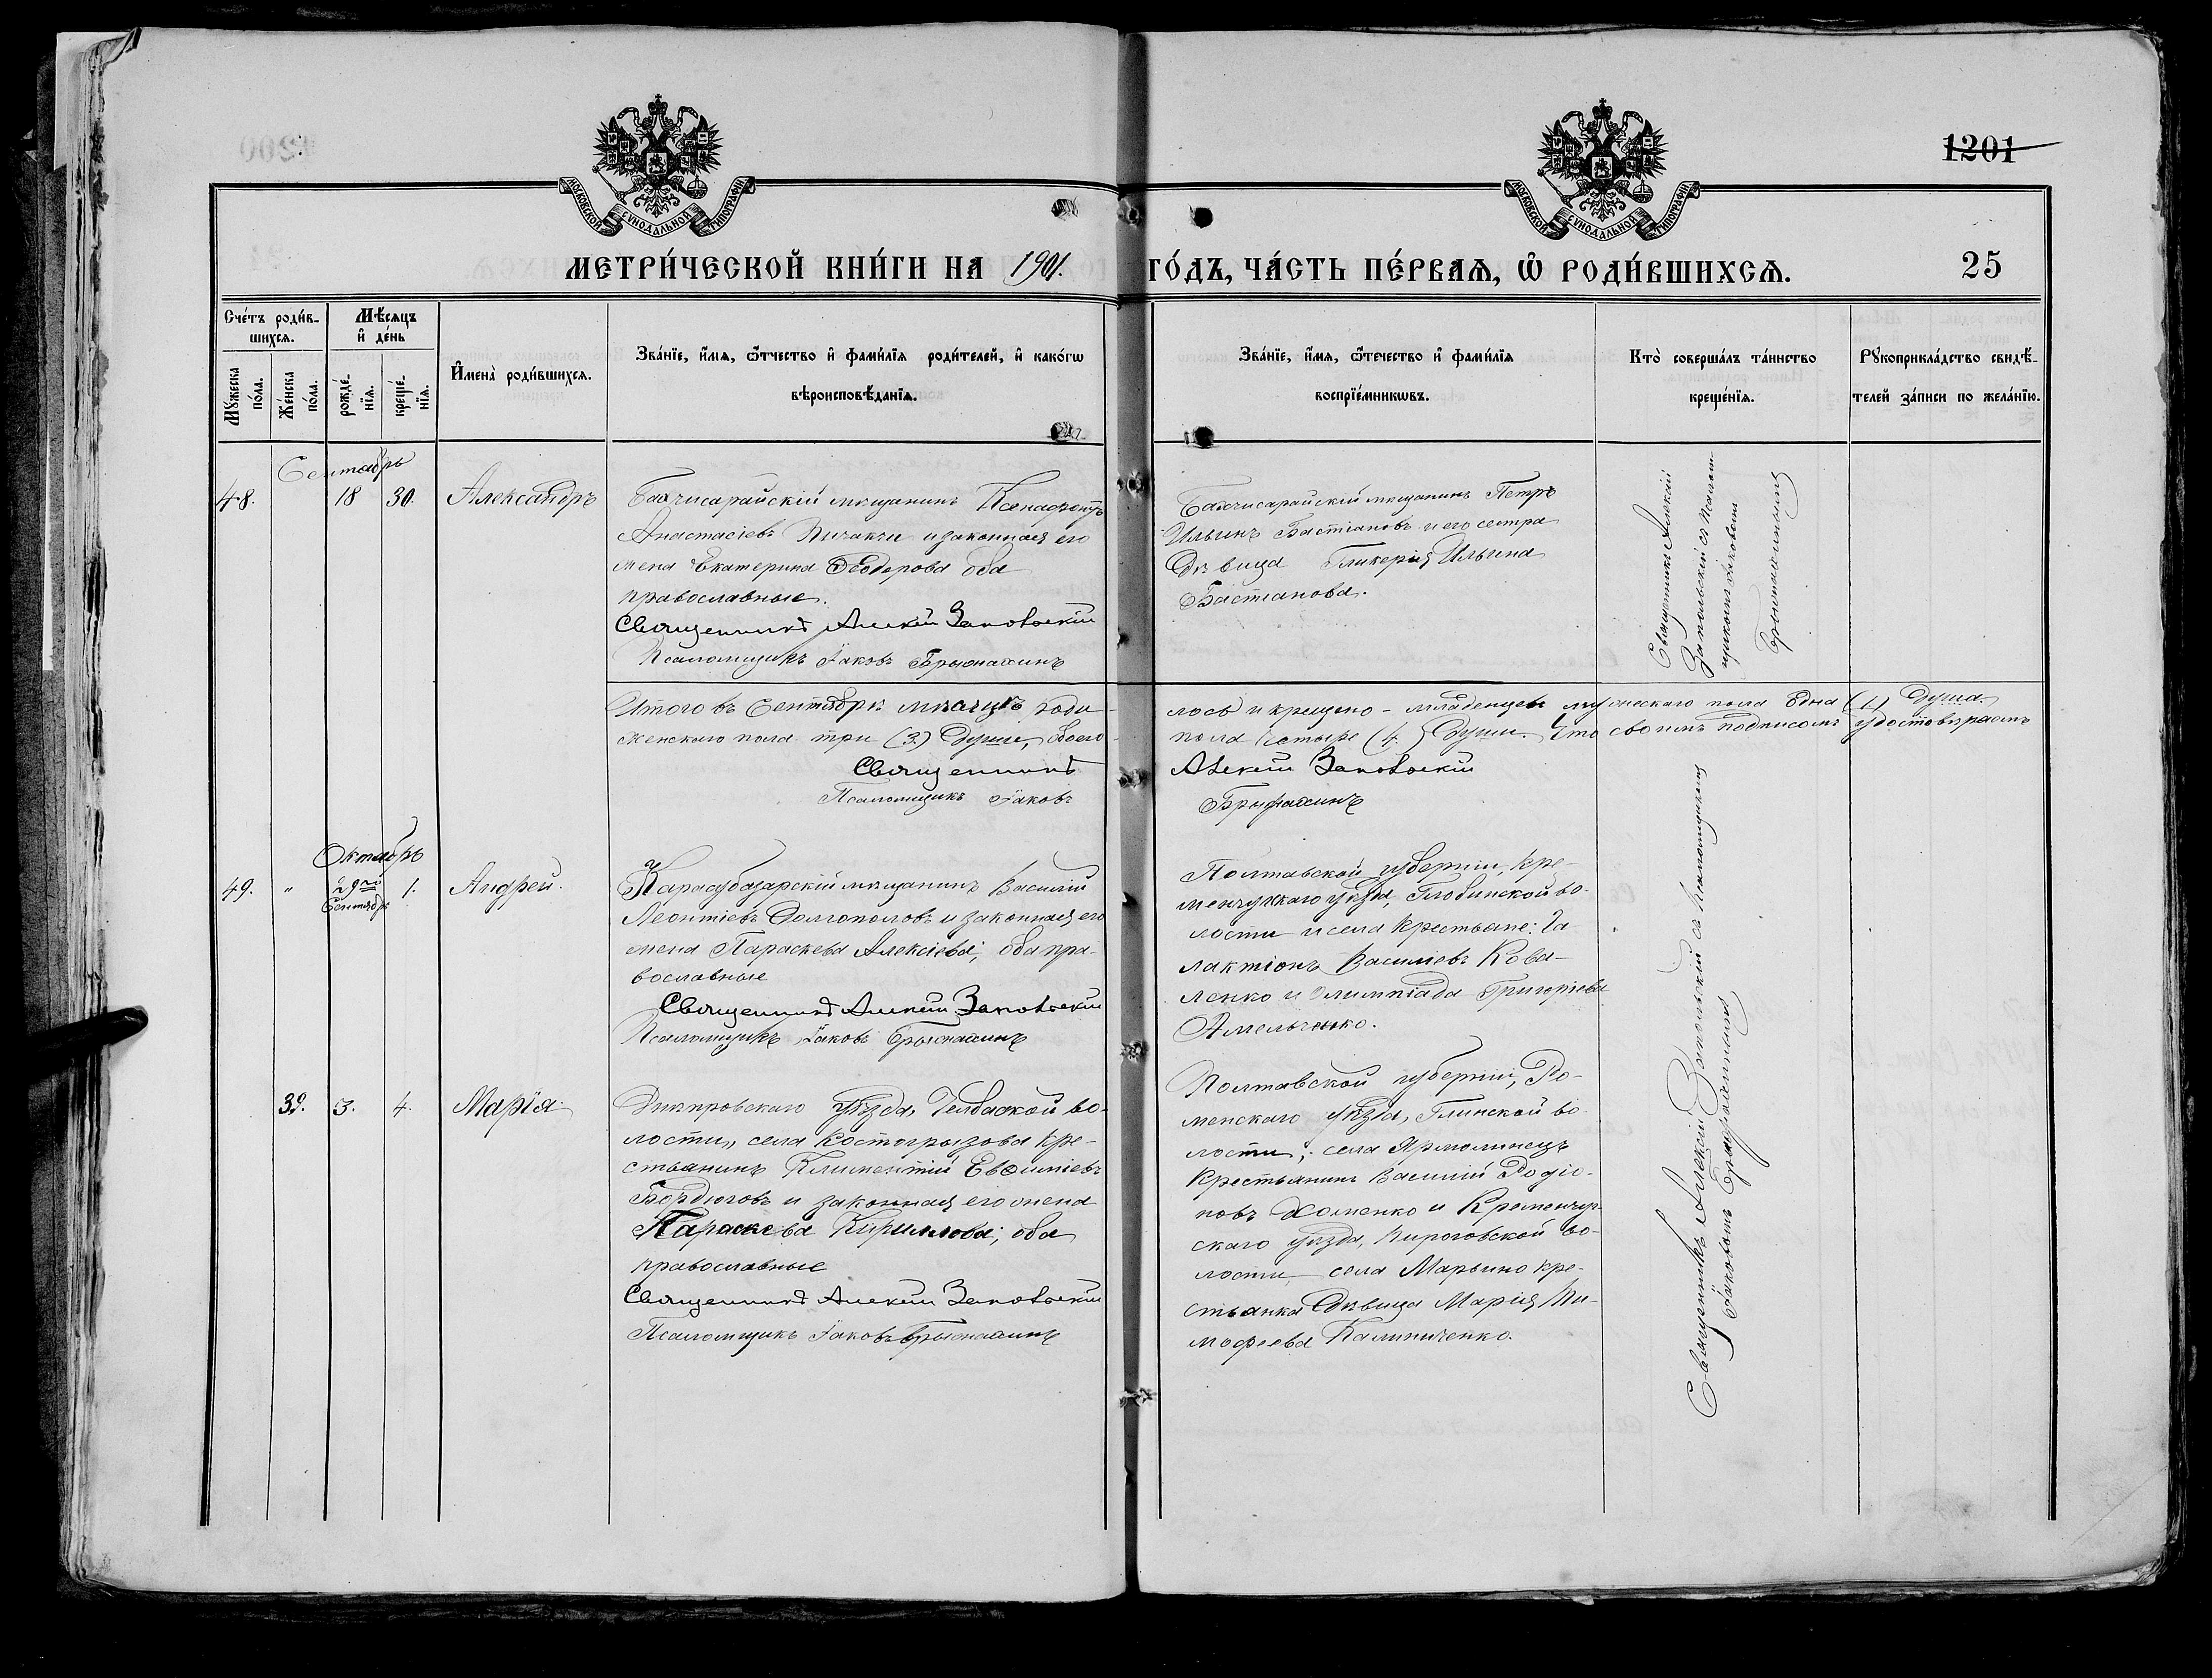 1201
МОСКОВСКОЙ СУНОДАЛЬНОЙ ТИПОГРАФІИ
МОСКОВСКОЙ СУНОДАЛЬНОЙ ТИПОГРАФІИ
МЕТРИ́ЧЕСКОЙ КНИ́ГИ НА 1901. ГО́ДЪ, ЧА́СТЬ ПЕ́РВАѦ, Ѽ РОДИ́ВШИХСѦ.
25
Сче́тъ роди́в-
шихсѧ.
Мꙋ́жеска
по́ла.
Же́нска
по́ла.
Мѣ́сѧцъ
и҆ де́нь
рожде́-
нїѧ.
креще́-
нїѧ.
И҆мена̀ роди́вшихсѧ.
Зва́нїе, и҆́мѧ, ѻ҆́тчество и҆ фамилїѧ роди́телей, и҆ како́гѡ
вѣроисповѣ́данїѧ.
Зва́нїе, и҆́мѧ, ѻ҆те́чество и҆ фами́лїѧ
воспрїе́мникѡвъ.
Кто̀ соверша́лъ та́инство
креще́нїѧ.
Рꙋкоприкла́дство свидѣ́-
телей за́писи по жела́нїю.
Сентябрь
48.
18
30.
Александръ
Бахчисарайскій мѣщанинъ Ксенофонтъ
Анастасіевъ и законная его
жена Екатерина Ѳеодорова оба
православные.
Священникъ Алексій Запольскій
Псаломщикъ Іаковъ
Бахчисарайскій мѣщанинъ Петръ
Ильинъ Бастіановъ и его сестра
Дѣвица Гликерія Ильина
Бастіанова.
Священникъ Алексій
Запольскій съ Псалом-
щикомъ Іаковомъ
Итого въ Сентябрѣ мѣсяцѣ роди-
лось и крещено - младенцевъ мужескаго пола одна (1) Душа.
женскаго пола три (3.) Души, обоего
пола четыре (4.) Души. Что своимъ подписомъ удостовѣряемъ
Священникъ Алексій Запольскій
Псаломщикъ Іаковъ
Октябрь
49.
"
29го
Сентября
1.
Андрей.
Карасубазарскій мѣщанинъ Василій
Леонтіевъ Долгополовъ и законная его
жена Параскева Алексіева; оба пра-
вославные
Священникъ Алексій Запольскій
Псаломщикъ Іаковъ
Полтавской губерніи, Кре-
менчугскаго уѣзда, Глобинской во-
лости и села Крестьяне: Га
лактіонъ Васильевъ Кова-
ленко и Олимпіада Григоріева
Амельченко.
39.
3.
4.
Марія
Днѣпровскаго уѣзда, Челбаской во-
лости, села Костогрызова кре-
стьянинъ Климентій Евѳиміевъ
Бордюговъ и законная его жена
Параскева Кириллова; оба
православные
Священникъ Алексій Запольскій
Псаломщикъ Іаковъ
Полтавской губерніи, Ро-
менскаго уѣзда, Глинской во-
лости; села Ярмолинецъ
Крестьянинъ Василій Родіо-
новъ Хоменко и Кременчуг-
скаго уѣзда, Пироговской во-
лости села Марьино кре-
стьянка Дѣвица Марія Ти-
моѳеева Калиниченко.
Священникъ Алексій Запольскій съ псаломщикомъ
Іаковомъ